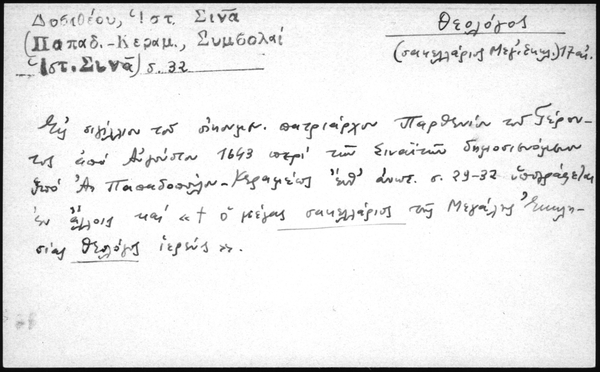 Δοσιθέου, Ἱστ. Σινᾶ
(Παπαδ.-Κεραμ., Συμβολαί
Ἱστ. Σινᾶ) σ. 32
Θεολόγος
(σακελλάριος Μεγ. Ἐκκλ.) 17 αἰ.
Εἰς σιγίλλιον τοῦ οἰκουμεν. πατριάρχου Παρθενίου τοῦ Γέρον-
τος ἀπό Αὐγούστου 1643 περί τῶν Σιναϊτῶν δημοσιευόμενον
ὑπό Ἀ. Παπαδοπούλου-Κεραμέως ἔνθ' ἀνωτ. σ. 29-32 ὑπογράφεται
ἐν ἄλλοις καί «† ὁ μέγας σακελλάριος τῆς Μεγάλης Ἐκκλη-
σίας Θεολόγος ἱερεύς».